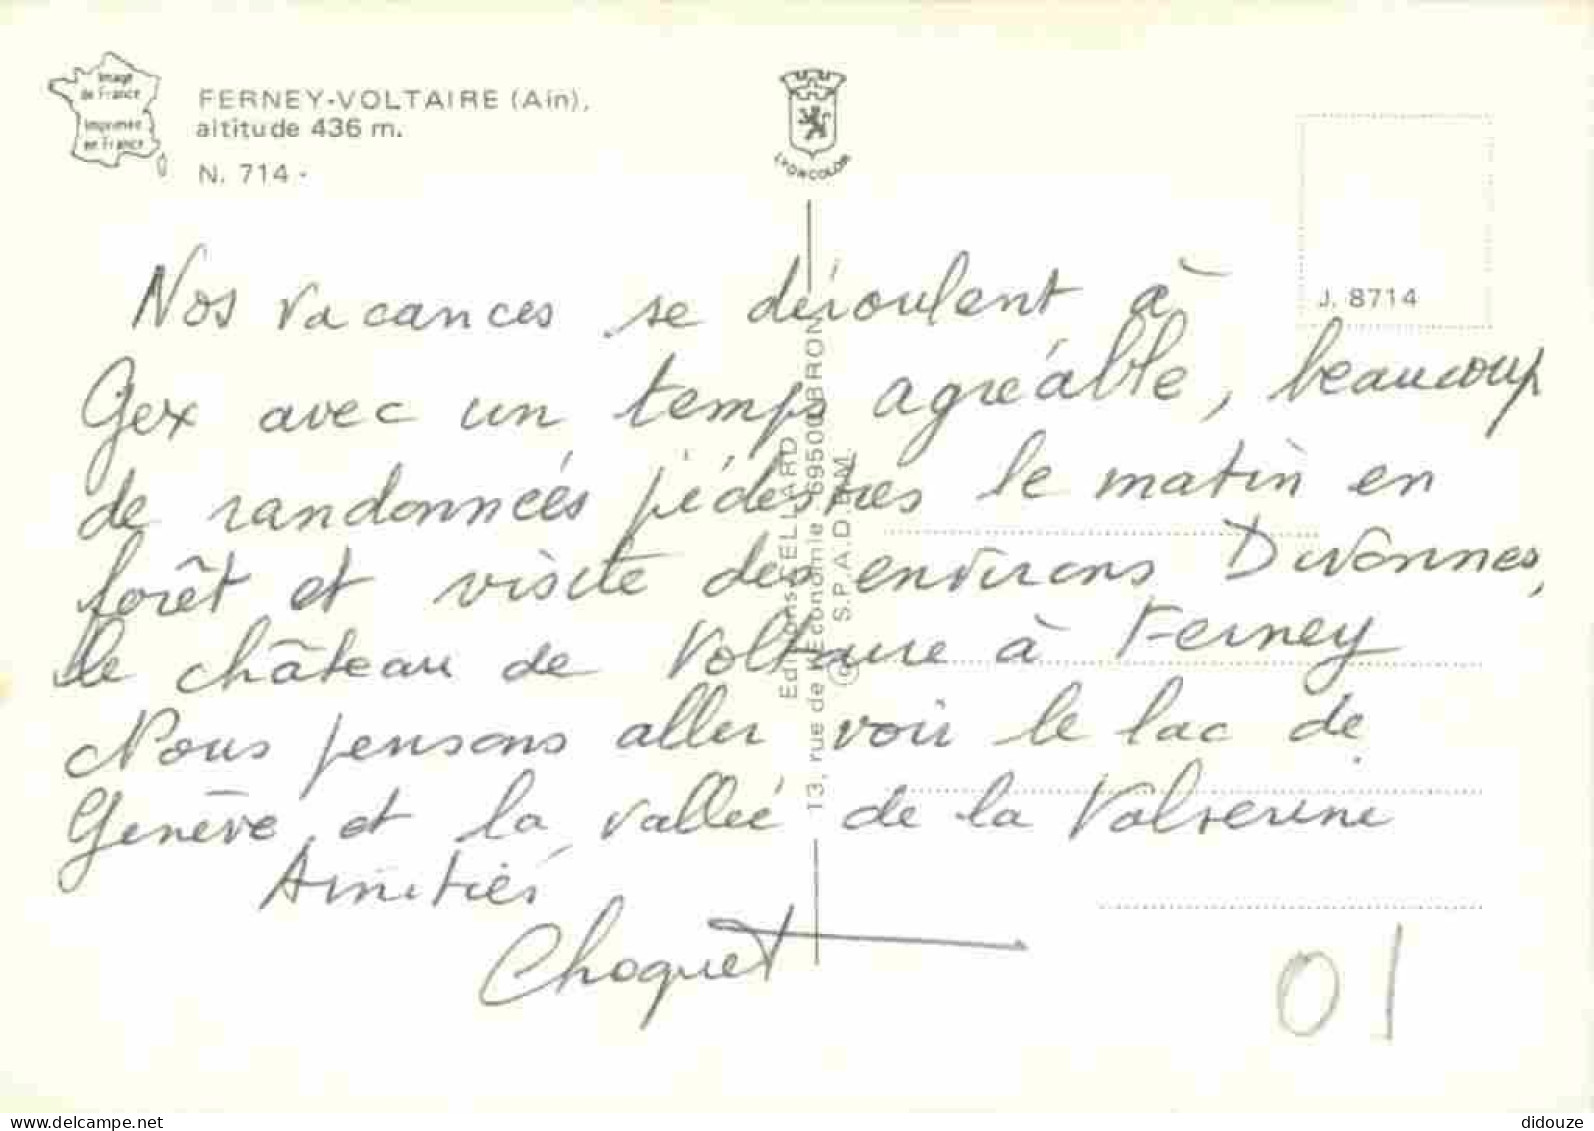 Image
de France
Imprimée
en France
FERNEY-VOLTAIRE (Ain),
altitude 436 m.
N. 714 -
LYONCOLOR
J. 8714
Nos vacances se déroulent à
Gex avec un temps agréable, beaucoup
de randonnées pédestres le matin en
forêt et visite des environs Divonnes,
le château de Voltaire à Ferney
Nous pensons aller voir le lac de
Genève et la vallée de la Valserine
Amitiés
Choquet
Editions CELLARD
13, rue de l'Economie 69500 BRON
© S.P.A.D.E.M.
01
www.delcampe.net
didouze